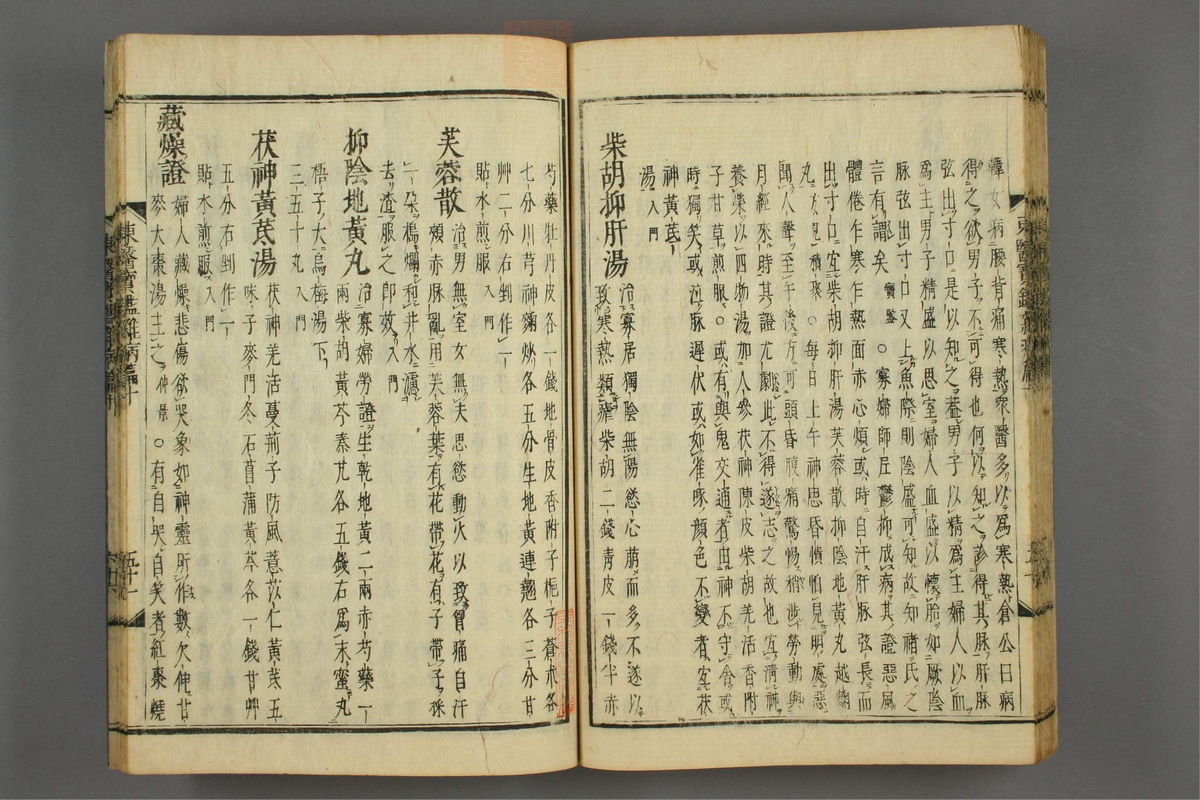 韓女病腰背痛寒熱衆醫多以爲寒熱倉公曰病
得之欲男子不可得也何以知之診得其脉肝脉
弦出寸口是以知之蓋男子以精爲主婦人以血
爲主男子精盛以思室婦人血盛以懷胎如厥陰
脉弦出寸口又上魚際則陰盛可知故知褚氏之
言有謂矣寶鑑○寡婦師尼鬱抑成病其證惡風
體倦乍寒乍熱面赤心煩或時自汗肝脉弦長而
出寸口宜柴胡抑肝湯芙蓉散抑陰地黃丸越鞠
丸方見積聚○每日上午神思昏憒怕見明處惡
聞人聲至午後方可頭昏腹痛驚惕稍涉勞動與
月經來時其證尤劇此不得遂志之故也宜淸神
養榮以四物湯加人參茯神陳皮柴胡羌活香附
子甘草煎服○或有與鬼交通者由神不守舍或
時獨笑或泣脉遲伏或如雀啄顔色不變者宜茯
神黃芪
湯入門
柴胡抑肝湯 治寡居獨陰無陽慾心萌而多不遂以
致寒熱類瘧柴胡二錢靑皮一錢半赤
芍藥牡丹皮各一錢地骨皮香附子梔子蒼朮各
七分川芎神麴炒各五分生地黃連翹各三分甘
艸二分右剉作一
貼水煎服入門
芙蓉散 治男無室女無夫思慾動火以致胷痛自汗
頰赤脉亂用芙蓉葉有花帶花有子帶子採
一朶搗爛和井水濾
去渣服之卽效入門
抑陰地黃丸 治寡婦勞證生乾地黃二兩赤芍藥一
兩柴胡黃芩秦艽各五錢右爲末蜜丸
梧子大烏梅湯下
三五十丸入門
茯神黃芪湯 茯神羌活蔓荊子防風薏苡仁黃芪五
味子麥門冬石菖蒲黃芩各一錢甘艸
五分右剉作一
貼水煎服入門
藏燥證 婦人藏燥悲傷欲哭象如神靈所作數欠伸甘
麥大棗湯主之仲景○有自哭自笑者紅棗燒
東醫寶鑑雜病篇
五十一